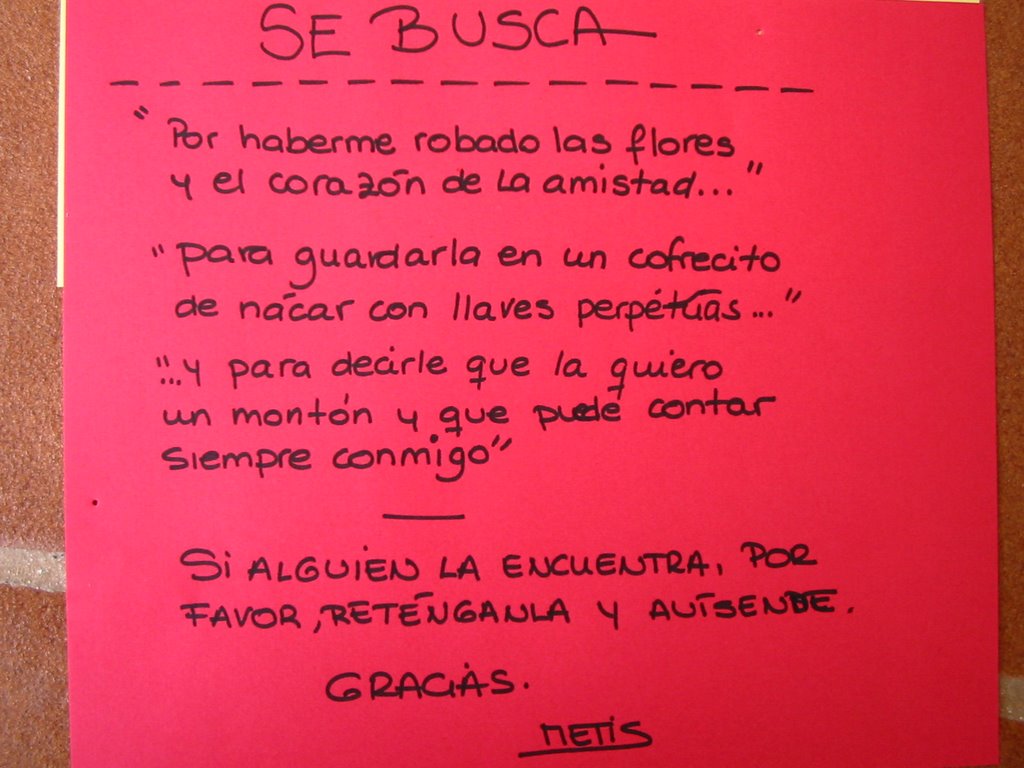 SE BUSCA
"Por haberme robado las flores
y el corazón de la amistad..."
"para guardarla en un cofrecito
de nácar con llaves perpétuas..."
"...y para decirle que la quiero
un montón y que puede contar
siempre conmigo"
Si ALGUIEN LA ENCUENTRA, POR
FAVOR, RETÉNGANLA Y AVÍSENDE.
GRACIAS.
METIS